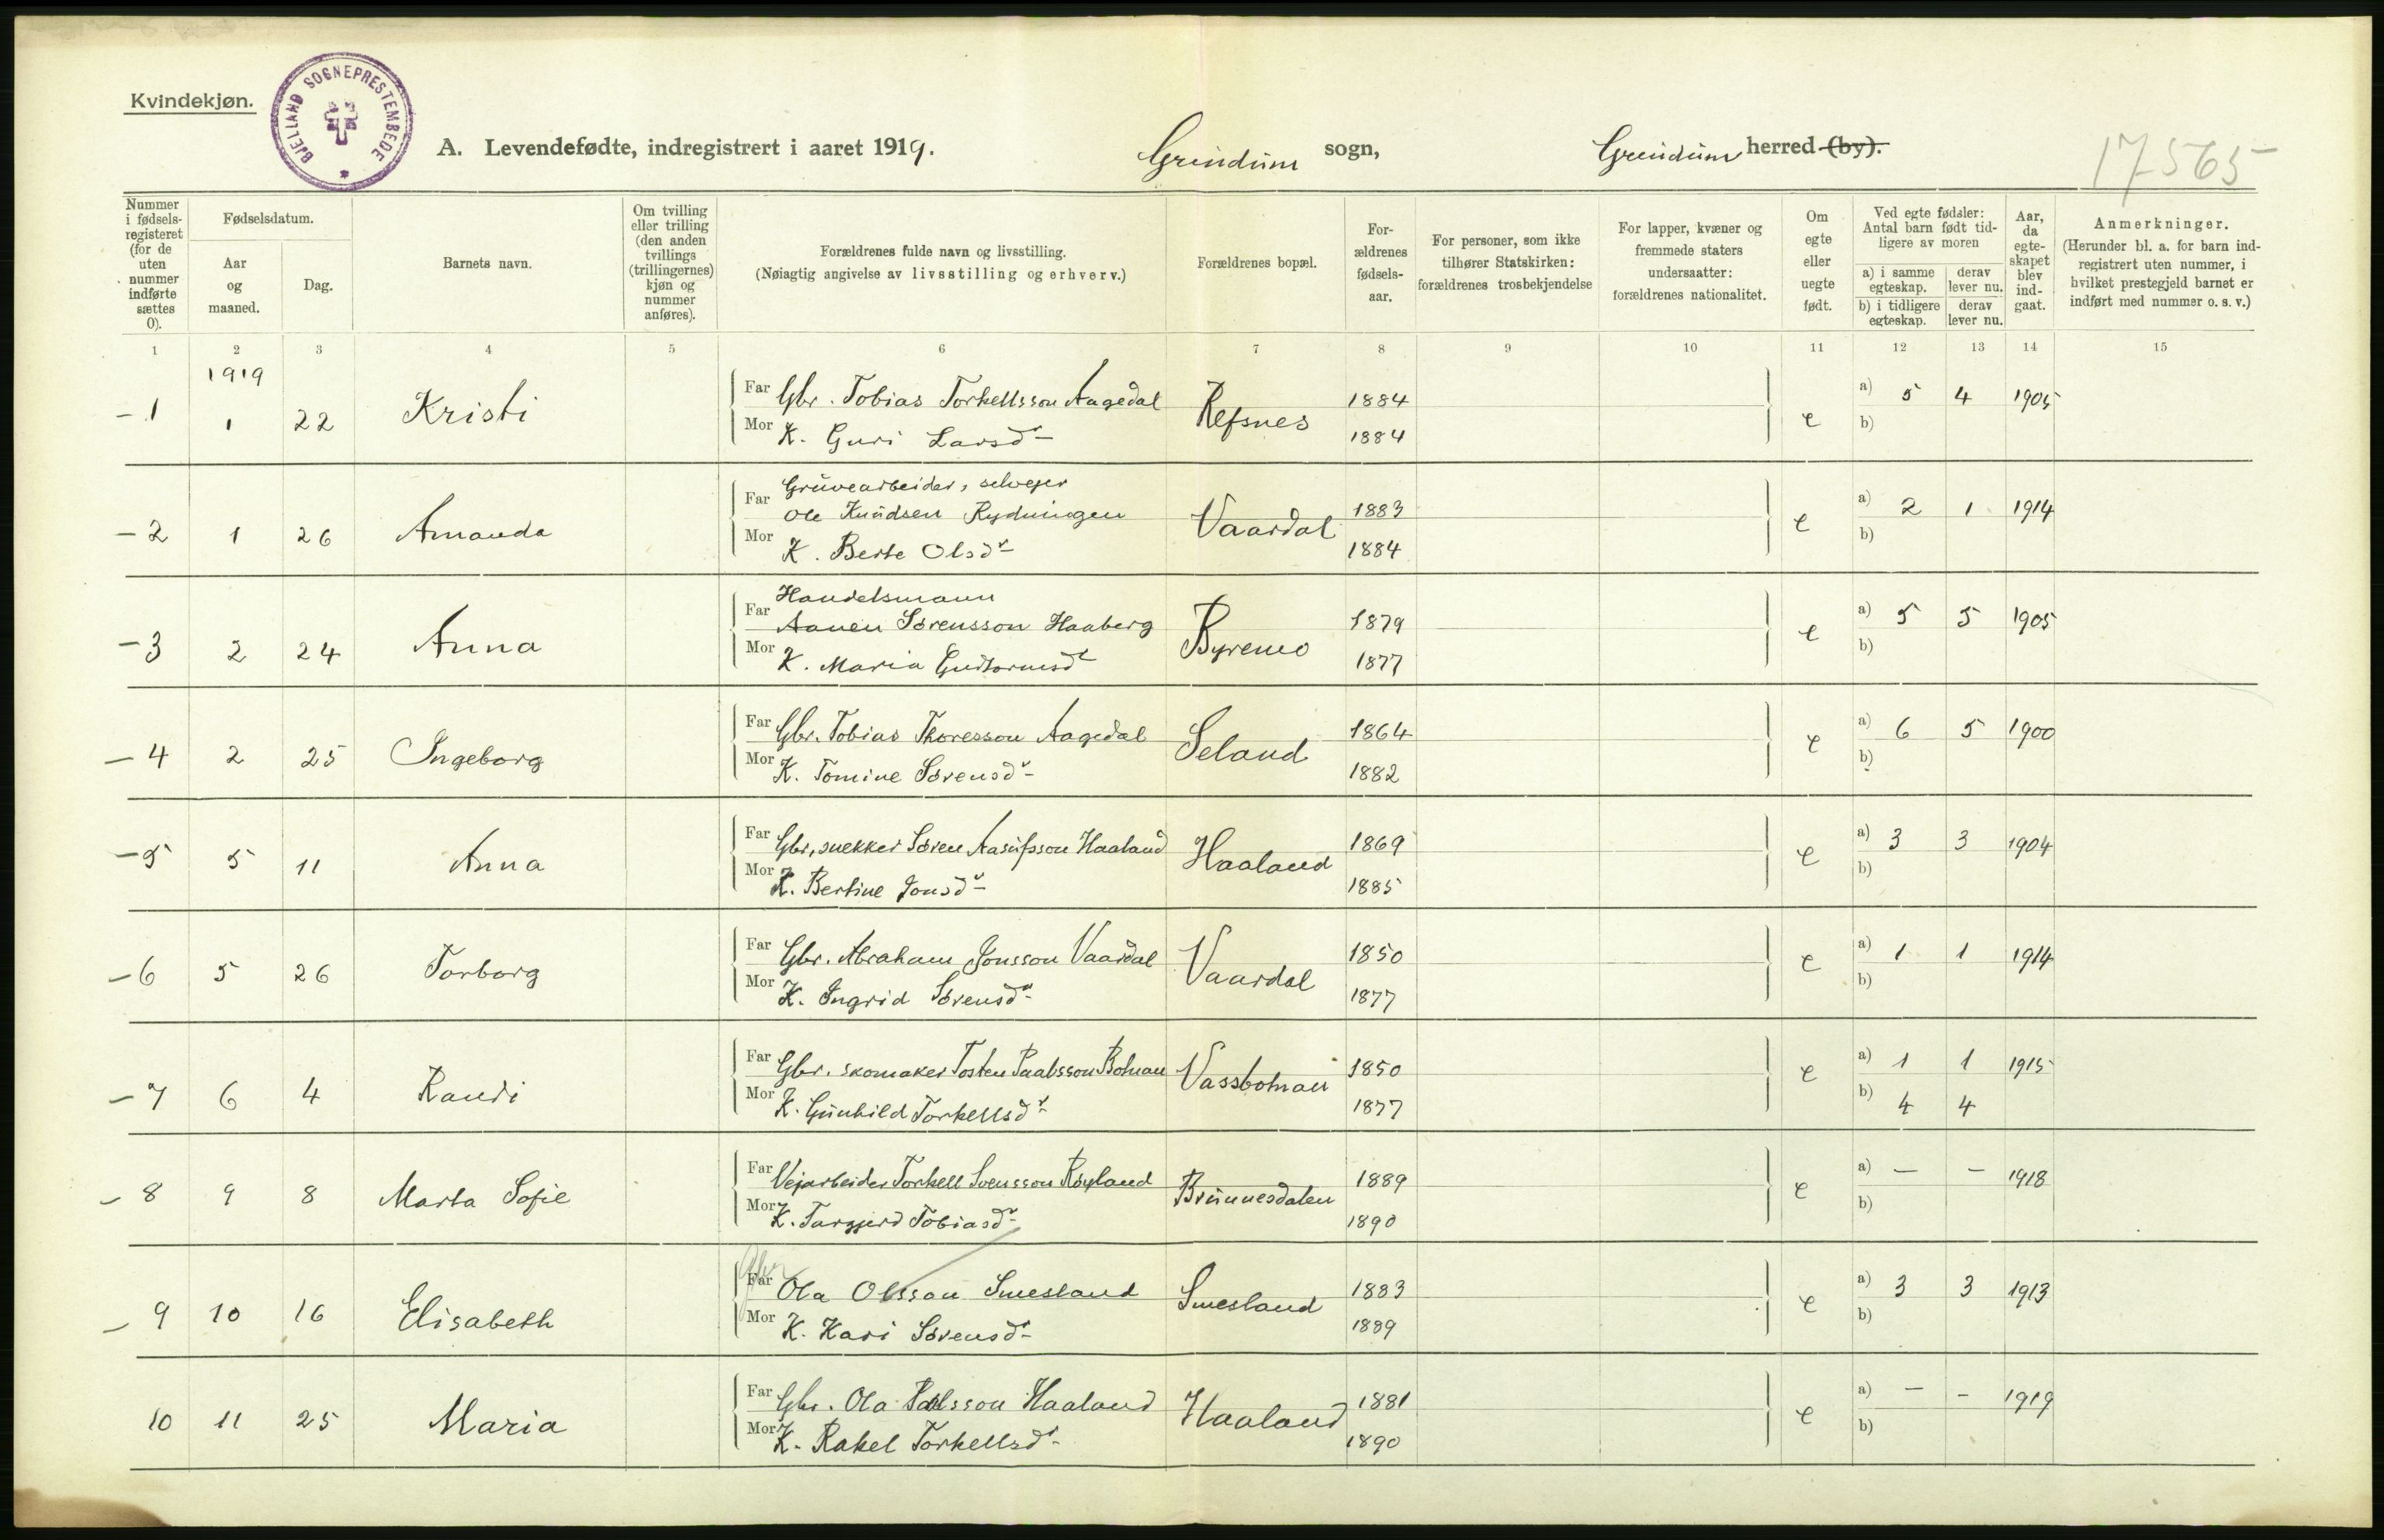 Kvindekjøn.
BJELLAND SOGNEPRESTEMBEDE
A. Levendefødte, indregistrert i aaret 1919. Grindum sogn, Grindum herred (by). 17565
Nummer i fødselsregisteret (for de uten nummer indførte sættes 0).
Fødselsdatum.
Aar og maaned.
Dag.
Barnets navn.
Om tvilling eller trilling (den anden tvillings (trillingernes) kjøn og nummer anføres).
Forældrenes fulde navn og livsstilling.
(Nøiagtig angivelse av livsstilling og erhverv.)
Forældrenes bopæl.
Forældrenes fødselsaar.
For personer, som ikke tilhører Statskirken: forældrenes trosbekjendelse
For lapper, kvæner og fremmede staters undersaatter: forældrenes nationalitet.
Om egte eller uegte født.
Ved egte fødsler: Antal barn født tidligere av moren
a) i samme egteskap. derav lever nu.
b) i tidligere egteskap. derav lever nu.
Aar, da egteskapet blev indgaat.
Anmerkninger.
(Herunder bl. a. for barn indregistrert uten nummer, i hvilket prestegjeld barnet er indført med nummer o. s. v.)
1 2 3 4 5 6 7 8 9 10 11 12 13 14 15
1919
– 1 1 22 Kristi Far Gbr. Tobias Torkellsson Aagedal Refsnes 1884 e a) 5 4 1905
Mor K. Guri Larsdr 1884 b)
Gruvearbeider, selvejer
– 2 1 26 Amanda Far Ole Knudsen Rydningen Vaardal 1883 e a) 2 1 1914
Mor K. Berte Olsdr 1884 b)
Handelsmann
– 3 2 24 Anna Far Aanen Sørensson Haaberg Byremo 1879 e a) 5 5 1905
Mor K. Maria Guttormsdr 1877 b)
– 4 2 25 Ingeborg Far Gbr. Tobias Thoresson Aagedal Seland 1864 e a) 6 5 1900
Mor K. Tomine Sørensdr 1882 b)
– 5 5 11 Anna Far Gbr, snekker Søren Aasulfsson Haaland Haaland 1869 e a) 3 3 1904
Mor K. Bertine Jonsdr 1885 b)
– 6 5 26 Torborg Far Gbr. Abraham Jonsson Vaardal Vaardal 1850 e a) 1 1 1914
Mor K. Ingrid Sørensdr 1877 b)
– 7 6 4 Randi Far Gbr. skomaker Tosten Paalsson Botnan Vassbotnan 1850 e a) 1 1 1915
Mor K. Gunhild Torkellsdr 1877 b) 4 4
– 8 9 8 Marta Sofie Far Vejarbeider Torkell Svensson Røyland Brunnesdalen 1889 e a) – – 1918
Mor K. Targjerd Tobiasdr 1890 b)
Gbr
– 9 10 16 Elisabeth Far Ola Olsson Smesland Smesland 1883 e a) 3 3 1913
Mor K. Kari Sørensdr 1889 b)
10 11 25 Maria Far Gbr. Ola Paalsson Haaland Haaland 1881 e a) – – 1919
Mor K. Rakel Torkellsdr 1890 b)